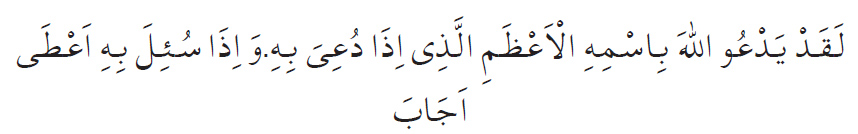 لَقَدْ يَدْعُو اللهَ بِاسْمِهِ الْاَعْظَمِ الَّذِى اِذَا دُعِىَ بِهِ.وَ اِذَا سُئِلَ بِهِ اَعْطَى
اَجَابَ